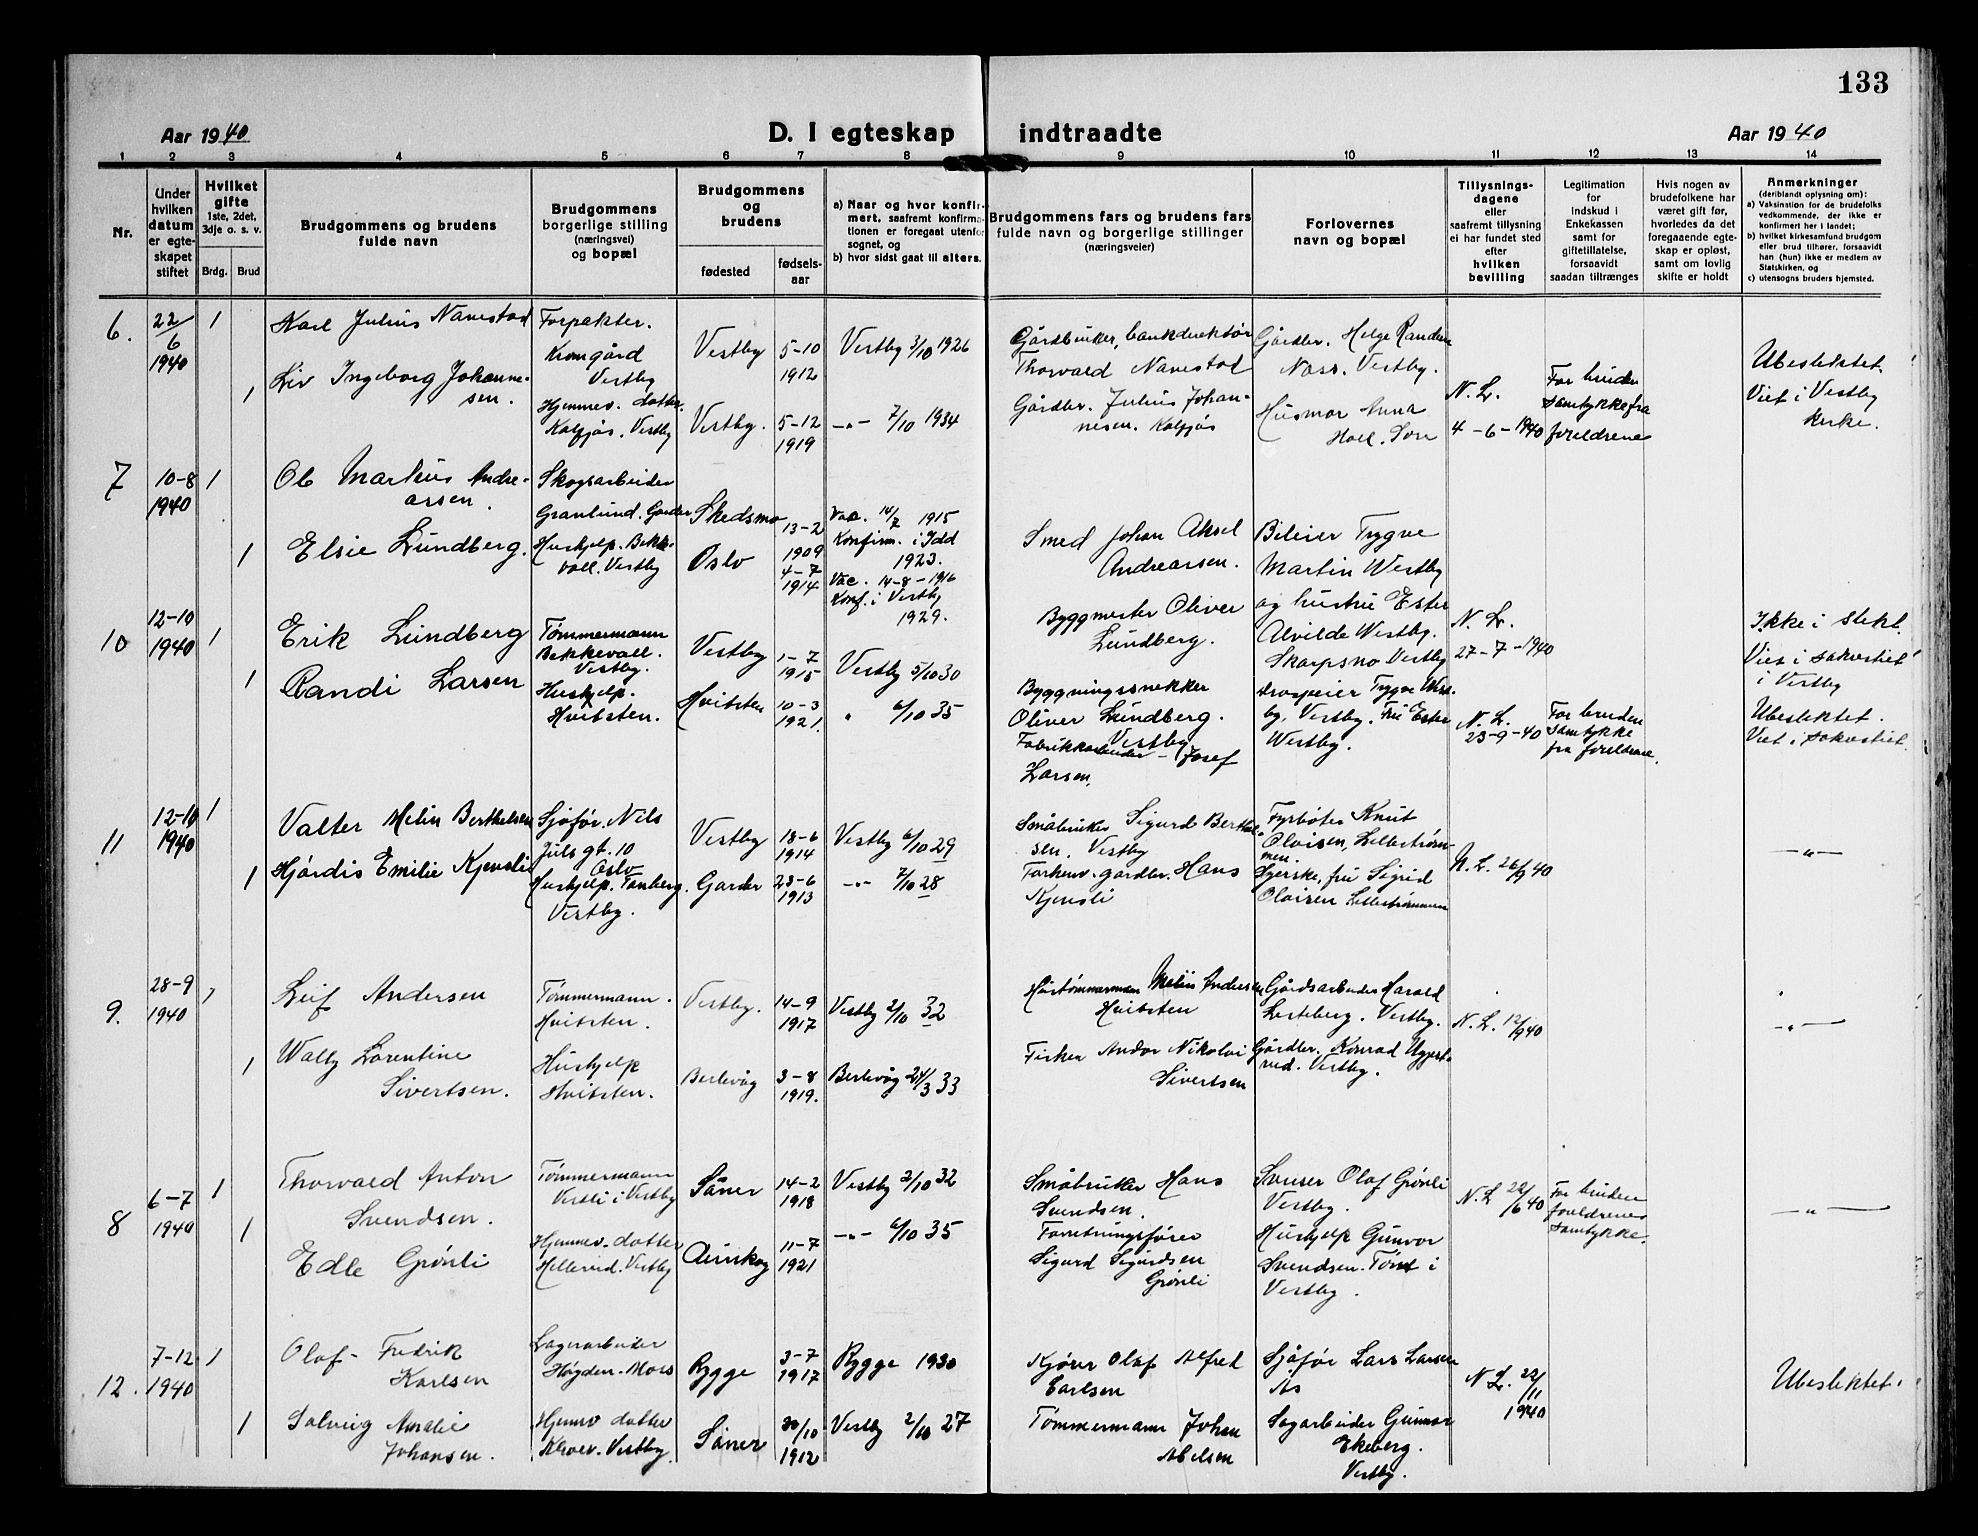 133
Aar 1940
D. I egteskap indtraadte
Aar 1940
1 2 3 4 5 6 7 8 9 10 11 12 13 14
Nr.
Under
hvilken
datum
er egte-
skapet
stiftet
Hvilket
gifte
1ste, 2det,
3dje o. s. v.
Brdg. Brud
Brudgommens og brudens
fulde navn
Brudgommens
borgerlige stilling
(næringsvei)
og bopæl
Brudgommens
og
brudens
fødested
fødsels-
aar
a) Naar og hvor konfir-
mert, saafremt konfirma-
tionen er foregaat utenfor
sognet, og
b) hvor sidst gaat til alters.
Brudgommens fars og brudens fars
fulde navn og borgerlige stillinger
(næringsveier)
Forlovernes
navn og bopæl
Tillysnings-
dagene
eller
saafremt tillysning
ei har fundet sted
efter
hvilken
bevilling
Legitimation
for
Indskud i
Enkekassen
samt for
giftetillatelse,
forsaavidt
saadan tiltrænges
Hvis nogen av
brudefolkene har
været gift før,
hvorledes da det
foregaaende egte-
skap er opløst,
samt om lovlig
skifte er holdt
Anmerkninger
(deriblandt oplysning om):
a) Vaksinstion for de brudefolks
vedkommende, der ikke er
konfirmert her i landet;
b) hvilket kirkesamfund brudgom
eller brud tilhører, forsaavidt
han (hun) ikke er medlem av
Statskirken, og
c) utensogns bruders hjemsted.
6.
22/6
1940
1
Karl Julius Navestad
Forpakter.
Kromgård
Vestby
Vestby
5-10
1912
Vestby 3/10 1926
Gårdbruker, bankdirektør
Thorvald Navestad
Gårdbr. Helge Randem
Nass. Vestby.
Ubeslektet.
Viet i Vestby
kirke.
1
Liv Ingeborg Johanne-
sen.
Hjemmev. datter.
Kolpjøs. Vestby
Vestby.
5-12
1919
-"- 7/10 1934
Gårdbr. Julius Johan-
nesen. Kolpjøs
Husmor Anna
Holl. Son
N. L.
4-6-1940
For bruden
samtykke fra
foreldrene
7
10-8
1940
1
Ole Markus Andre-
arsen.
Skogsarbeider
Granlund. Garder
Skedsmo
13-2
1909
Vac. 14/7 1915
Konfirm. i Idd
1923.
Smed Johan Aksel
Andrearsen.
Bileier Trygve
Martin Westby
1
Elsie Lundberg.
Hushjelp. Bekke-
voll. Vestby
Oslo
4-7
1914
Vac. 14-8-1916
Konf. i Vestby
1929.
Byggmester Oliver
Lundberg.
og hustru Ester
Alvilde Westby.
Skarpsno Vestby
N. L.
27-7-1940
Ikke i slekt.
Viet i sakristiet
i Vestby
10
12-10
1940
1
Erik Lundberg
Tømmermann
Bekkevoll.
Vestby.
Vestby
1-7
1915
Vestby 5/10 30
Byggningssnekker
Oliver Lundberg.
Vestby
Drosjeeier Trygve West-
by, Vestby. Fru Ester
Westby.
N. L.
23-9-40
For bruden
samtykke
fra foreldrene.
Ubeslektet.
Viet i sakristiet.
1
Randi Larsen
Hushjelp.
Hvitsten.
Hvitsten
10-3
1921.
" 6/10 35
Fabrikkarbeider - Josef
Larsen.
11
12-10
1940
1
Valter Milin Berthelsen
Sjåfør. Nils
Juls gt. 10
Oslo
Vestby
18-6
1914
Vestby 6/10 29
Småbruker Sigurd Berthel-
sen. Vestby
Fyrbøter Knut
Oloisen, Lillestrøm-
men.
N. L. 26/9 40
-"-
1
Hjørdis Emilie Kjensli
Hushjelp. Tonberg.
Vestby.
Garder
23-6
1913
-"- 7/10 28
Forhenv. gårdbr. Hans
Kjensli
Syerske, fru Sigrid
Oloisen Lillestrømmen
9.
28-9
1940
1
Leif Andersen
Tømmermann.
Hvitsten.
Vestby.
14-9
1917
Vestby 2/10 32
Hustømmermann Melin Andersen
Hvitsten
Gårdsarbeider Harald
Lesteberg. Vestby.
N. L. 12/9 40
-"-
1
Wally Lorentine
Sivertsen.
Hushjelp
Hvitsten.
Berlevåg
3-8
1919.
Berlevåg 24/3 33
Fisker Andor Nikolai
Sivertsen
Gårdbr. Konrad Uggest-
ved. Vestby.
8
6-7
1940
1
Thorvald Anton
Svendsen.
Tømmermann
Vestli i Vestby
Såner
14-2
1918
Vestby 2/10 32
Småbruker Hans
Svendsen.
Svenser Olaf Grønli
Vestby.
N. L 22/6 40
For bruden
foreldrenes
samtykke.
-"-
1
Edle Grønli
Hjemmev. datter
Hellerud. Vestby
Aurskog
11-7
1921
-"- 6/10 35
Forretningsfører
Sigurd Sigurdsen
Grønli
Hushjelp Gunvor
Svendsen. Tomt i
Vestby.
12.
7-12
1940
1
Olaf- Fredrik
Karlsen
Lagerarbeider
Høgden. Moss
Rygge
3-7
1917
Rygge 1930
Kjører Olaf Alfred
Carlsen
Sjåfør Lars Larsen
Ås
N L. 22/11
1940
Ubeslektet.
1
Solveig Amalie
Johansen.
Hjemmev datter
Kroer. Vestby.
Såner
30/10
1912
Vestby 2/10 27
Tømmermann Johan
Abelsen
Sagarbeider Gunnar
Ekeberg.
Vestby.